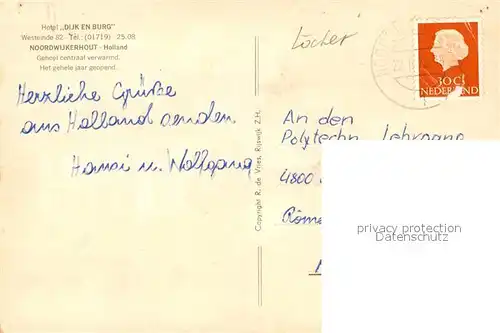 Hotel „DIJK EN BURG"
Westeinde 82 - Tel.: (01719) 25.08
NOORDWIJKERHOUT - Holland
Geheel centraal verwarmd.
Het gehele jaar geopend.
Löcher
30 CT
NEDERLAND
Herzliche Grüße
aus Holland senden
Hansi u. Wolfgang
Copyright R. de Vries, Rijswijk Z.H.
An den
Polytechn. Lehrgang
4800
privacy protection
Datenschutz